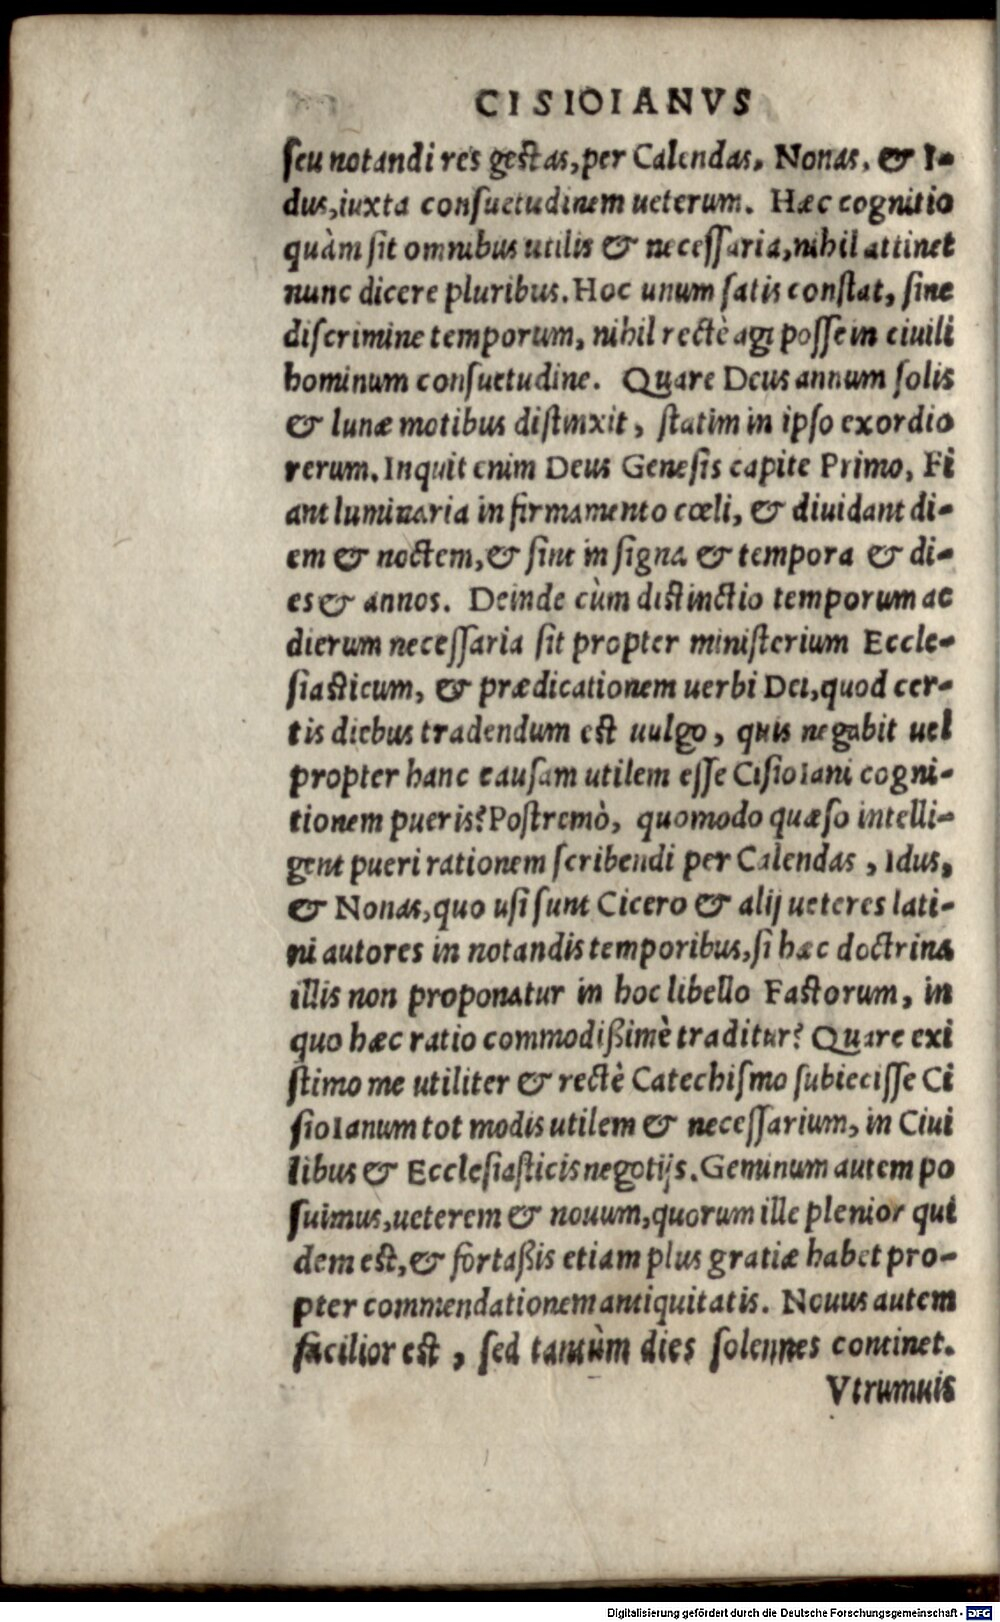 CISIOIANVS
seu notandi res gestas, per Calendas, Nonas, & I-
dus, iuxta consuetudinem ueterum. Hæc cognitio
quàm sit omnibus utilis & necessaria, nihil attinet
nunc dicere pluribus. Hoc unum satis constat, sine
discrimine temporum, nihil rectè agi posse in ciuili
hominum consuetudine. Quare Deus annum solis
& lunæ motibus distinxit, statim in ipso exordio
rerum. Inquit enim Deus Genesis capite Primo, Fi
ant luminaria in firmamento cœli, & diuidant di-
em & noctem, & sint in signa & tempora & di-
es & annos. Deinde cùm distinctio temporum ac
dierum necessaria sit propter ministerium Eccle-
siasticum, & prædicationem uerbi Dei, quod cer-
tis diebus tradendum est uulgo, quis negabit uel
propter hanc causam utilem esse CisioIani cogni-
tionem pueris? Postremò, quomodo quæso intelli-
gent pueri rationem scribendi per Calendas, Idus,
& Nonas, quo usi sunt Cicero & alij ueteres lati-
ni autores in notandis temporibus, si hæc doctrina
illis non proponatur in hoc libello Fastorum, in
quo hæc ratio commodißimè traditur? Quare exi
stimo me utiliter & rectè Catechismo subiecisse Ci
sioIanum tot modis utilem & necessarium, in Ciui
libus & Ecclesiasticis negotijs. Geminum autem po
suimus, ueterem & nouum, quorum ille plenior qui
dem est, & fortaßis etiam plus gratiæ habet pro-
pter commendationem antiquitatis. Nouus autem
facilior est, sed tantùm dies solennes continet.
Vtrumuis
Digitalisierung gefördert durch die Deutsche Forschungsgemeinschaft - DFG